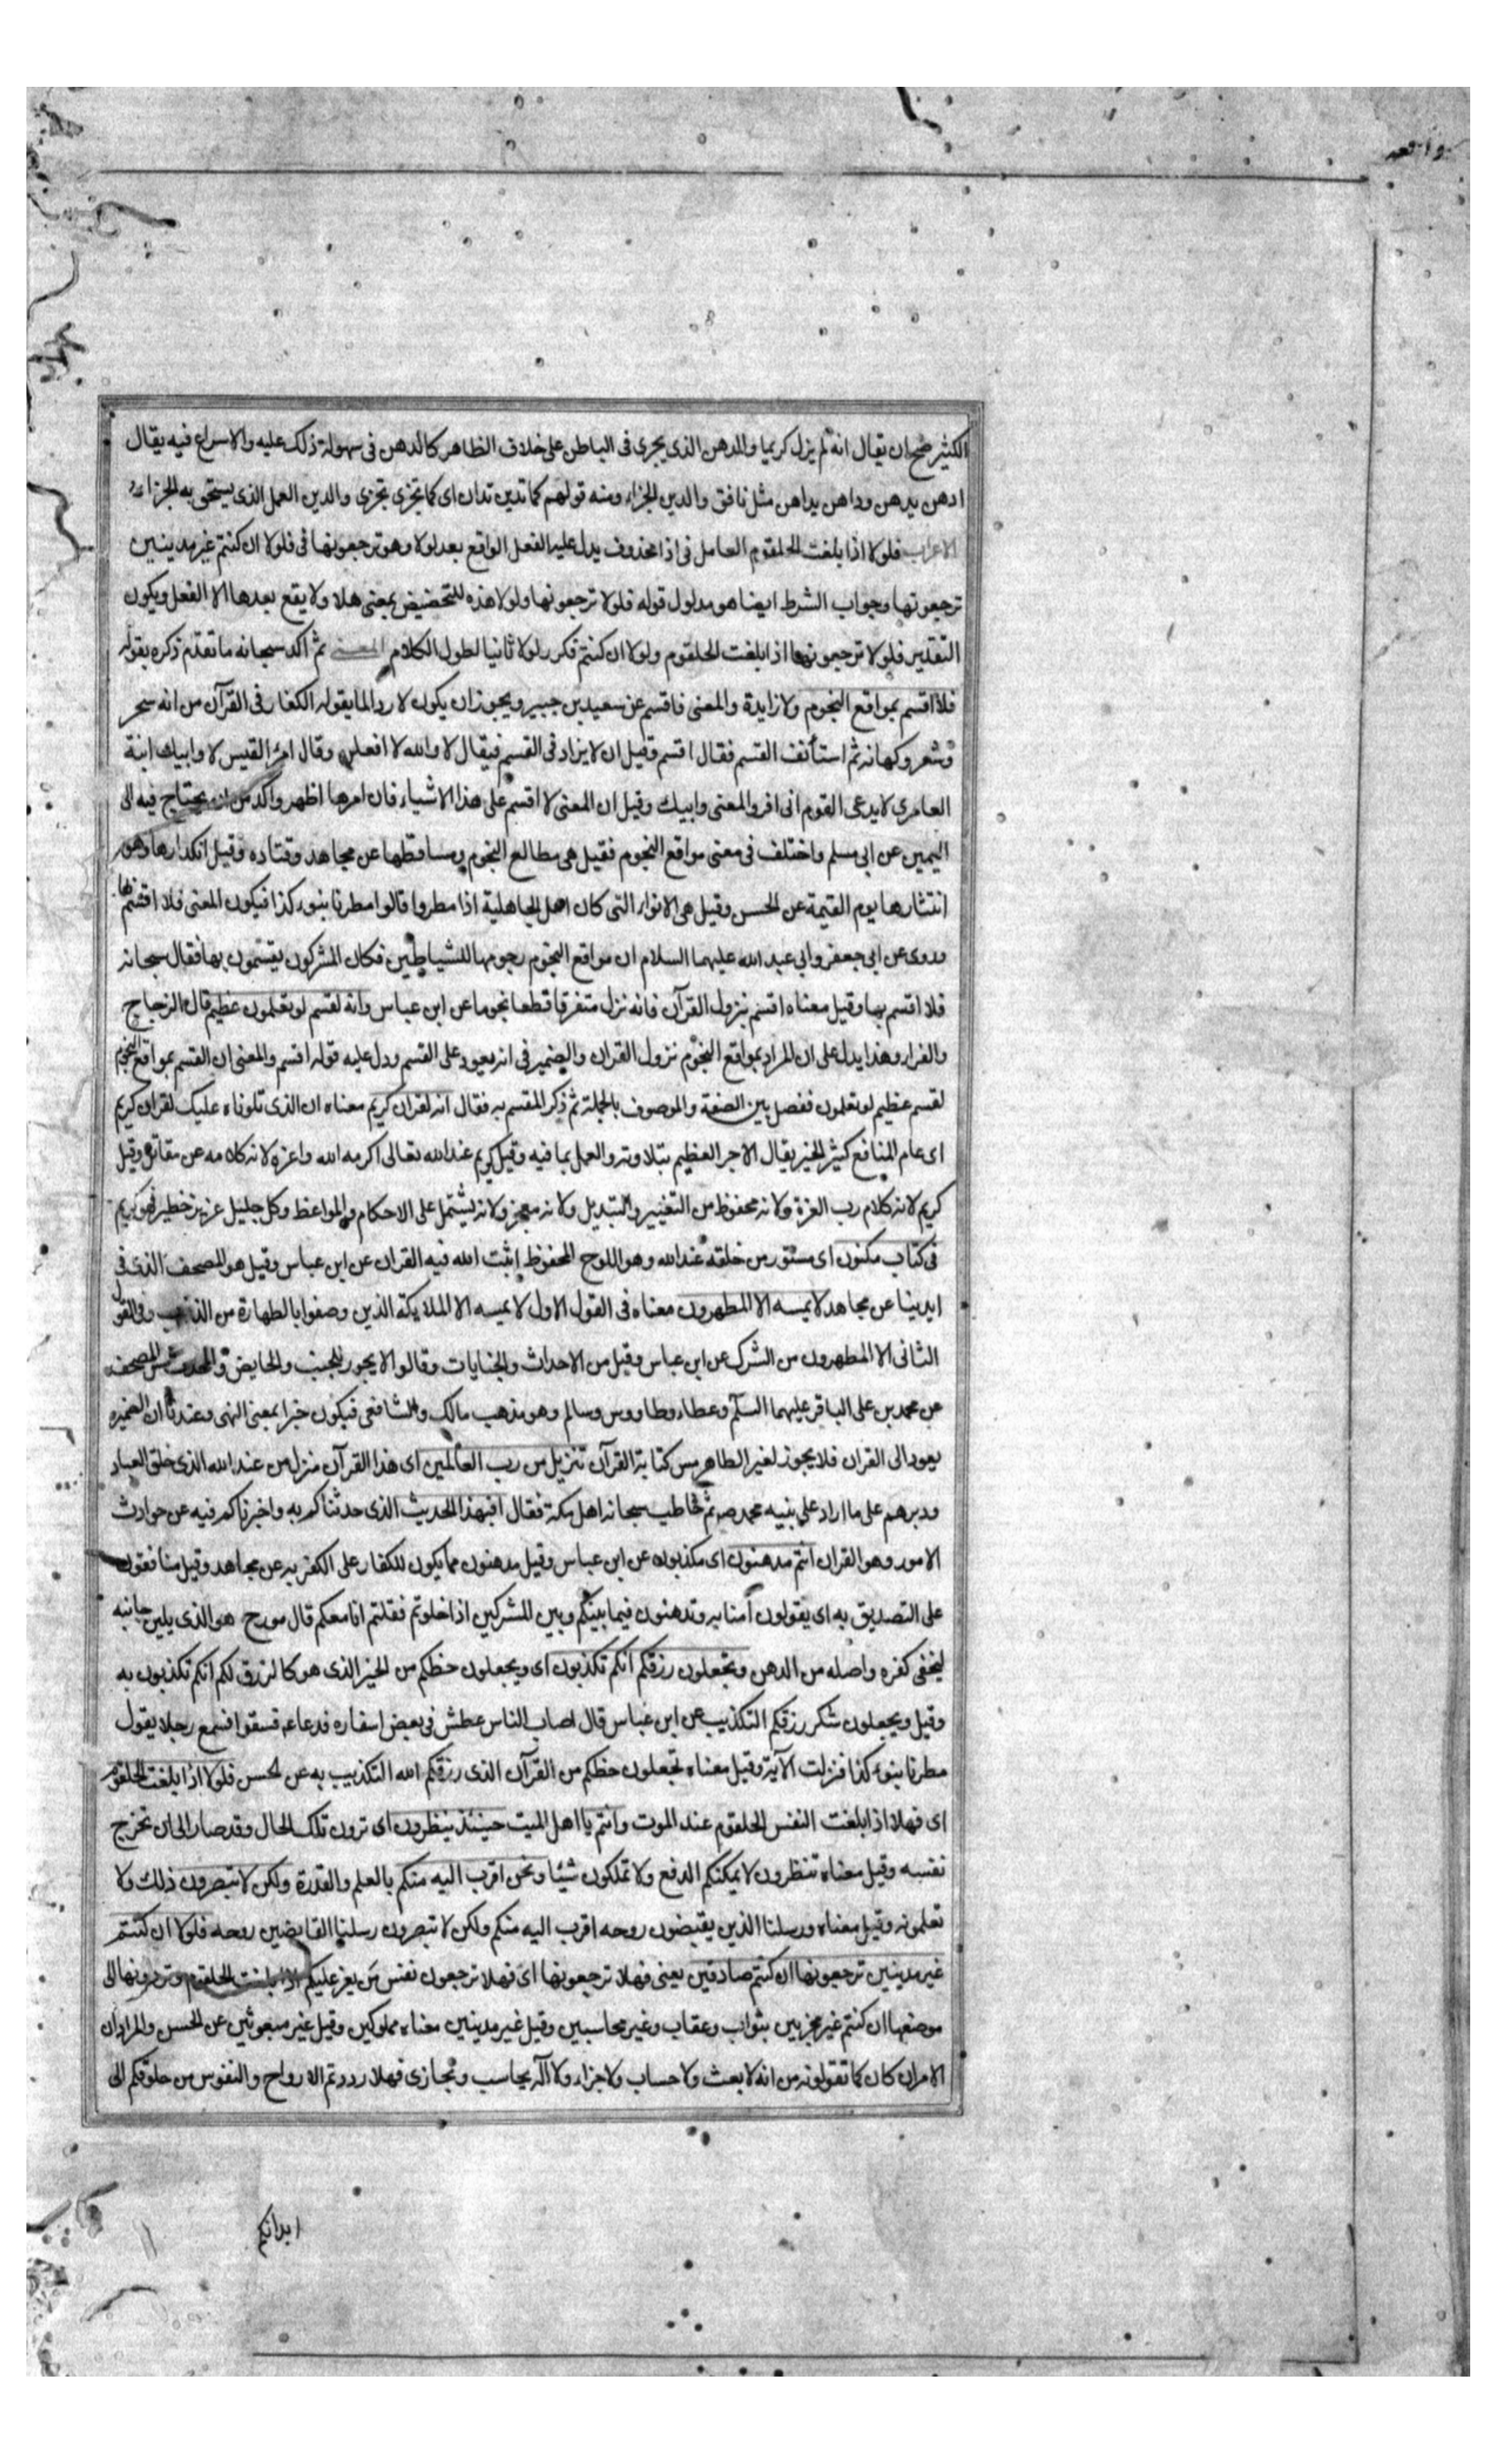 واقعه
الكثير صح ان يقال انه لم يزل كريما والمدهن الذى يجرى فى الباطن على خلاف الظاهر كالدهن فى سهولة ذلك عليه والاسراع فيه يقال
ادهن يدهن وداهن يداهن مثل نافق والدين الجزاء ومنه قولهم كما تدين تدان اى كما تجزى تجزى والدين العمل الذى يستحق به الجزاء
الاعراب فلولا اذا بلغت الحلقوم العامل فى اذا محذوف يدل عليه الفعل الواقع بعد لولا وهو ترجعونها فى فلولا ان كنتم غير مدينين
ترجعونها وجواب الشرط ايضا هو مدلول قوله فلولا ترجعونها ولولا هذه للتحضيض بمعنى هلا ولا يقع بعدها الا الفعل ويكون
التقدير فلولا ترجعونها اذا بلغت الحلقوم ولولا ان كنتم فكرر لولا ثانيا لطول الكلام المعنى ثم اكد سبحانه ما تقدم ذكره بقوله
فلا اقسم بمواقع النجوم ولا زايدة والمعنى فاقسم عن سعيد بن جبير ويجوز ان يكون لا ردا لما يقوله الكفار فى القرآن من انه سحر
وشعر وكهانه ثم استأنف القسم فقال اقسم وقيل ان لا يزاد فى القسم فيقال لا والله لا افعل وقال امرؤ القيس لا وابيك ابنة
العامري لا يدعى القوم انى افر والمعنى وابيك وقيل ان المعنى لا اقسم على هذا الاشياء فان امرها اظهر واكد من ان يحتاج فيه الى
اليمين عن ابى مسلم واختلف فى معنى مواقع النجوم فقيل هى مطالع النجوم ومساقطها عن مجاهد وقتاده وقيل انكدارها وهو
انتثارها يوم القيمة عن الحسن وقيل هى الانواء التى كان اهل الجاهلية اذا مطروا قالوا مطرنا بنوء كذا فيكون المعنى فلا اقسم بها
وروى عن ابى جعفر وابى عبد الله عليهما السلام ان مواقع النجوم رجومها للشياطين فكان المشركون يقسمون بها فقال سبحانه
فلا اقسم بها وقيل معناه اقسم بنزول القرآن فانه نزل متفرقا قطعا نجوما عن ابن عباس وانه لقسم لو تعلمون عظيم قال الزجاج
والفراء وهذا يدل على ان المراد بمواقع النجوم نزول القران والضمير فى انه يعود على القسم ودل عليه قوله اقسم والمعنى ان القسم بمواقع النجوم
لقسم عظيم لو تعلمون ففصل بين الصفة والموصوف بالجملة ثم ذكر المقسم به فقال انه لقران كريم معناه ان الذى تلوناه عليك لقران كريم
اى عام المنافع كثير الخير يقال الاجر العظيم بتلاوته والعمل بما فيه وقيل كريم عند الله تعالى اكرمه الله واعزه لانه كلامه عن مقاتل وقيل
كريم لانه كلام رب العزة ولانه محفوظ من التغيير والتبديل ولانه معجز ولانه يشتمل على الاحكام والمواعظ وكل جليل عزيز خطير فهو كريم
فى كتاب مكنون اى مستور من خلقه عند الله وهو اللوح المحفوظ اثبت الله فيه القران عن ابن عباس وقيل هو المصحف الذى فى
ايدينا عن مجاهد لا يمسه الا المطهرون معناه فى القول الاول لا يمسه الا الملايكة الذين وصفوا بالطهارة من الذنوب وفى القول
الثانى الا المطهرون من الشرك عن ابن عباس وقيل من الاحداث والجنايات وقالوا لا يجوز للجنب والحايض والمحدث مس المصحف
عن محمد بن على الباقر عليهما السلم وعطاء وطاووس وسالم وهو مذهب مالك والشافعى فيكون خبرا بمعنى النهى وعندنا ان الضمير
يعود الى القران فلا يجوز لغير الطاهر مس كتابة القرآن تنزيل من رب العالمين اى هذا القرآن منزل من عند الله الذى خلق العباد
ودبرهم على ما اراد على نبيه محمد ص ثم خاطب سبحانه اهل مكة فقال افبهذا الحديث الذى حدثناكم به واخبرناكم فيه عن حوادث
الامور وهو القران انتم مدهنون اى مكذبون عن ابن عباس وقيل مدهنون مما يكون للكفار على الكفر به عن مجاهد وقيل منافقون
على التصديق به اى يقولون آمنا به وتدهنون فيما بينكم وبين المشركين اذا خلوتم فقلتم انا معكم قال مورج هو الذى يلين جانبه
ليخفى كفره واصله من الدهن وتجعلون رزقكم انكم تكذبون اى ويجعلون حظكم من الخير الذى هو كالرزق لكم انكم تكذبون به
وقيل ويجعلون شكر رزقكم التكذيب عن ابن عباس قال اصاب الناس عطش فى بعض اسفاره فدعا ع فسقوا فسمع رجلا يقول
مطرنا بنوء كذا فنزلت الآية وقيل معناه تجعلون حظكم من القرآن الذى رزقكم الله التكذيب به عن الحسن فلولا اذا بلغت الحلقوم
اى فهلا اذا بلغت النفس الحلقوم عند الموت وانتم يا اهل الميت حينئذ ينظرون اى ترون تلك الحال وقد صار الى ان تخرج
نفسه وقيل معناه تنظرون لا يمكنكم الدفع ولا تملكون شيئا ونحن اقرب اليه منكم بالعلم والقدرة ولكن لا تبصرون ذلك ولا
تعلمونه وقيل معناه ورسلنا الذين يقبضون روحه اقرب اليه منكم ولكن لا تبصرون رسلنا القابضين روحه فلولا ان كنتم
غير مدينين ترجعونها ان كنتم صادقين يعنى فهلا ترجعونها اى فهلا ترجعون نفس من يعز عليكم اذا بلغت الحلقوم وتردونها الى
موضعها ان كنتم غير مجزيين بثواب وعقاب وغير محاسبين وقيل غير مدينين معناه مملوكين وقيل غير مبعوثين عن الحسن والمراد ان
الامر ان كان كما تقولونه من انه لا بعث ولا حساب ولا جزاء ولا اله يحاسب ويجازى فهلا رددتم الارواح والنفوس من حلوقكم الى
ابدانكم